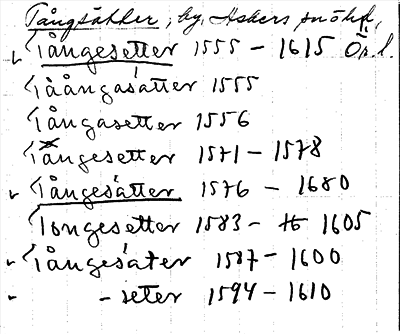 Tångsäkker, by, Askers snökd,
Tångesetter 1555 – 1615 Ör.l.
Tåångasätter 1555
Tångasetter 1556
Tångesetter 1571 – 1578
Tångesätter 1576 – 1680
Tongesetter 1583 – 1605
Tångesäter 1587 – 1600
– seter 1594 – 1610